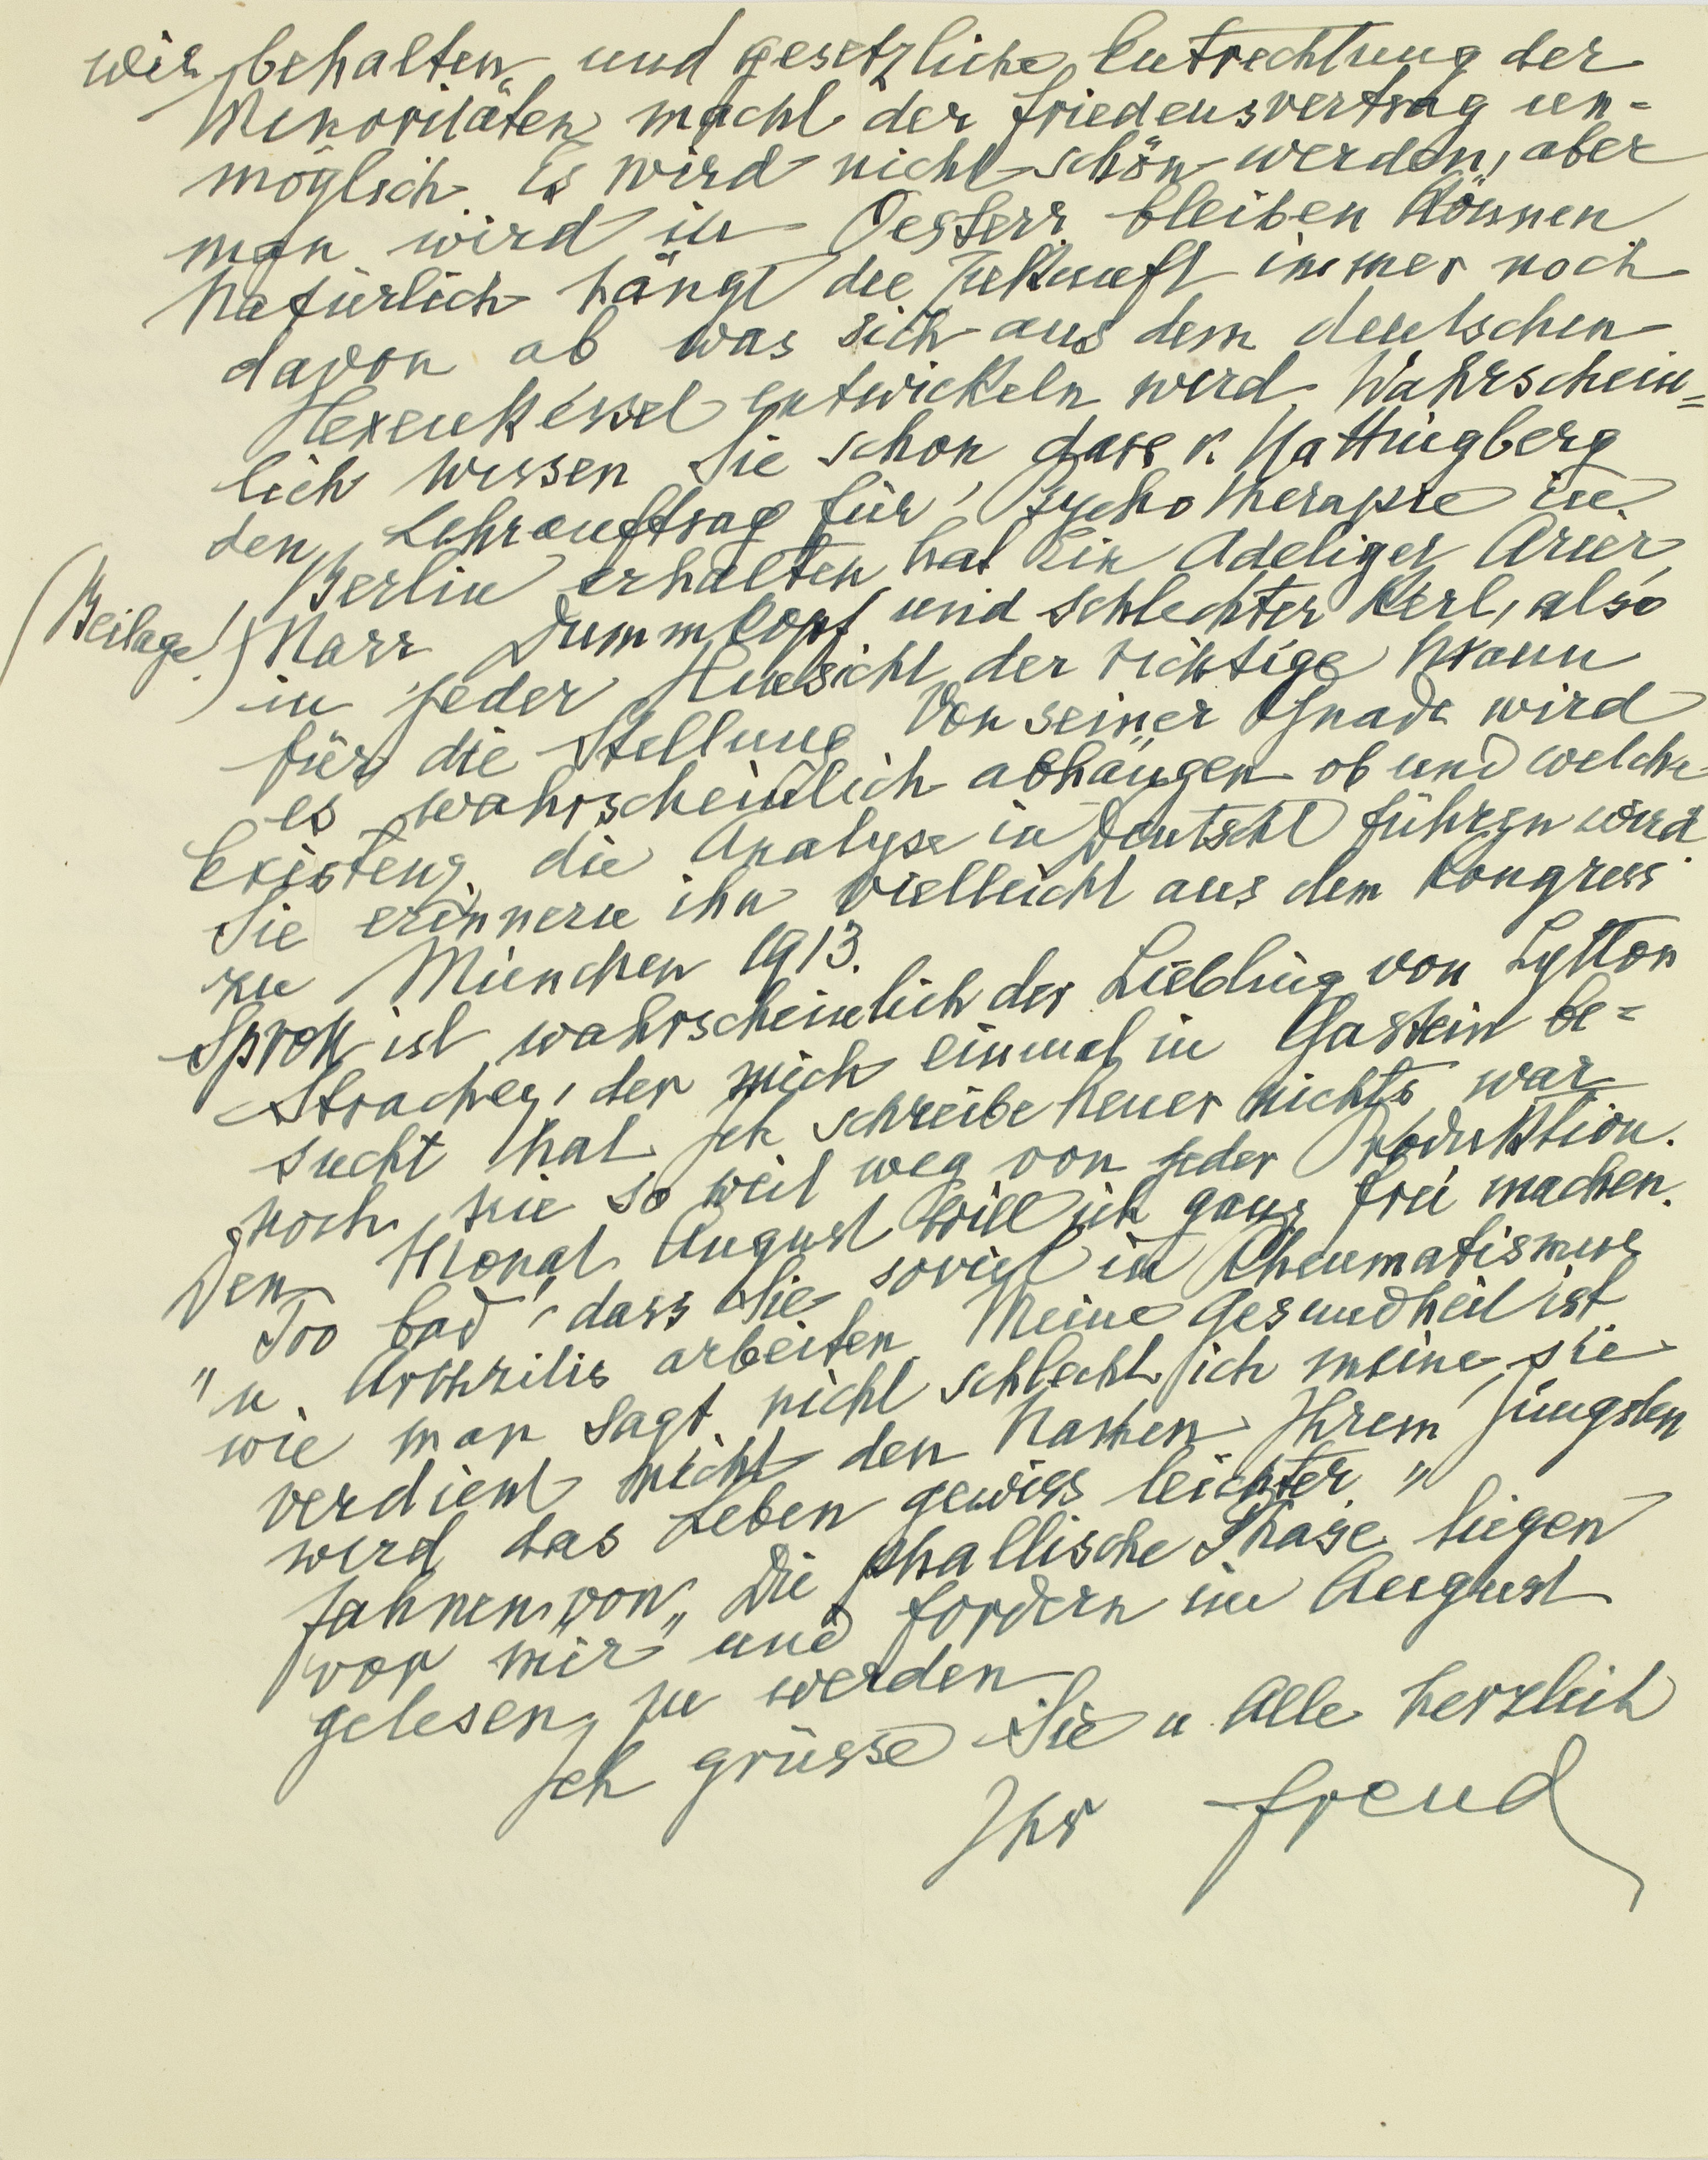 wir behalten und gesetzliche Entrechtung der
Minoritäten macht der Friedensvertrag un-
möglich. Es wird nicht schön werden, aber
man wird in Oesterr. bleiben können.
Natürlich hängt die Zukunft immer noch
davon ab was sich aus dem deutschen
Hexenkessel entwickeln wird. Wahrschein-
lich wissen Sie schon, dass v. Hattingberg
den Lehrauftrag für Psychotherapie in
Berlin erhalten hat. Ein Adeliger, Arier,
(Beilage!) Narr Dummkopf und schlechter Kerl, also
in jeder Hinsicht der richtige Mann
für die Stellung. Von seiner Gnade wird
es wahrscheinlich abhängen ob und welche
Existenz die Analyse in Deutschl führen wird.
Sie erinnern ihn vielleicht aus dem Kongress
zu München 1913.
Sprott ist wahrscheinlich der Liebling von Lytton
Strachey, der mich einmal in Gastein be-
sucht hat. Ich schreibe heuer nichts, war
noch nie so weit weg von jeder Produktion.
Den Monat August will ich ganz frei machen.
"Too bad", dass Sie soviel in Rheumatismus
u. Arthritis arbeiten. Meine Gesundheit ist
wie man sagt, nicht schlecht, ich meine, sie
verdient nicht den Namen. Ihrem Jüngsten
wird das Leben gewiss leichter.
Fahnen von „Die phallische Phase" liegen
vor mir und fordern im August
gelesen zu werden.
Ich grüsse Sie u Alle herzlich
Ihr Freud